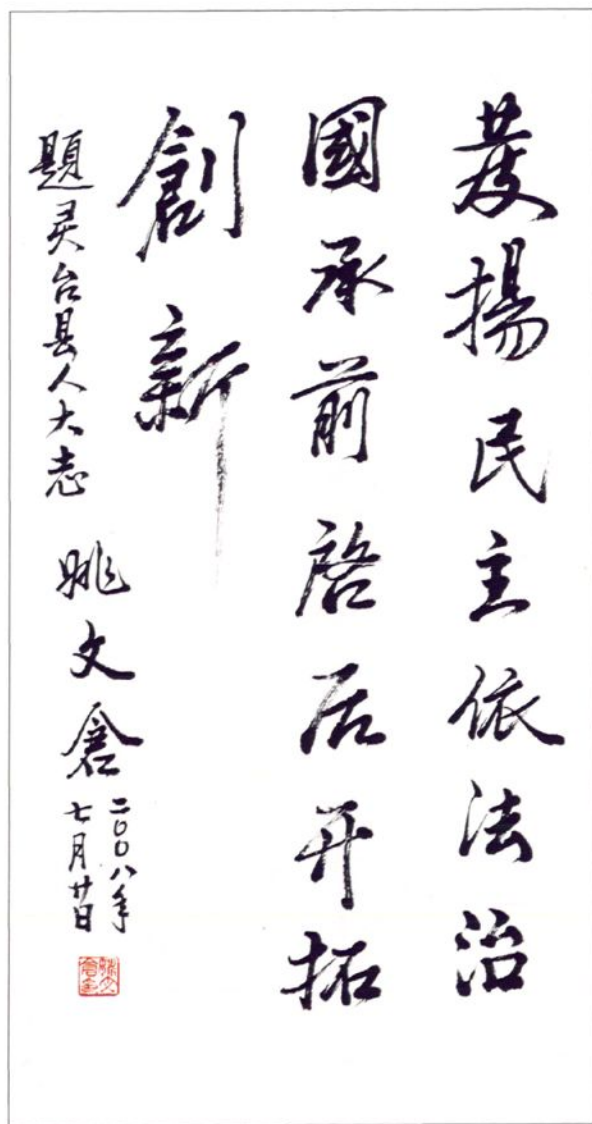 發揚民主依法治
國承前啓后开拓
創新
題灵台县人大志
姚文倉
二〇〇八年
七月廿日